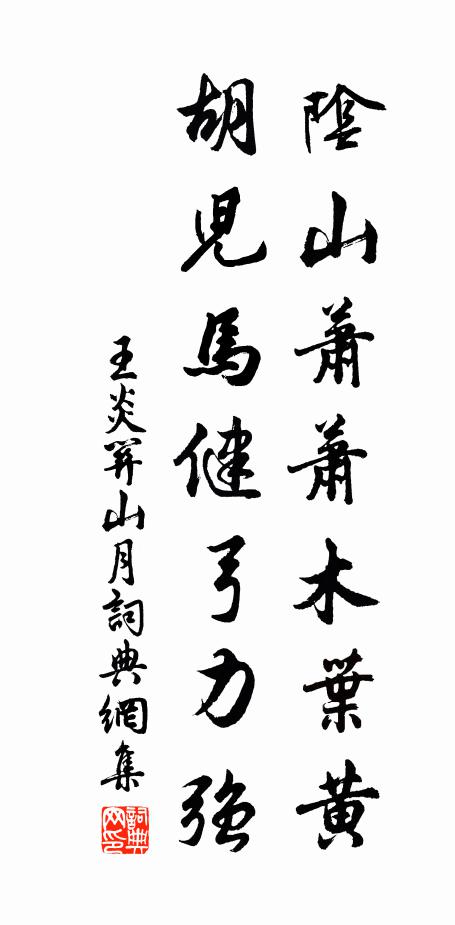 陰山蕭蕭木葉黃
胡児馬健弓力強
王炎関山月詞典網集
詞典网印